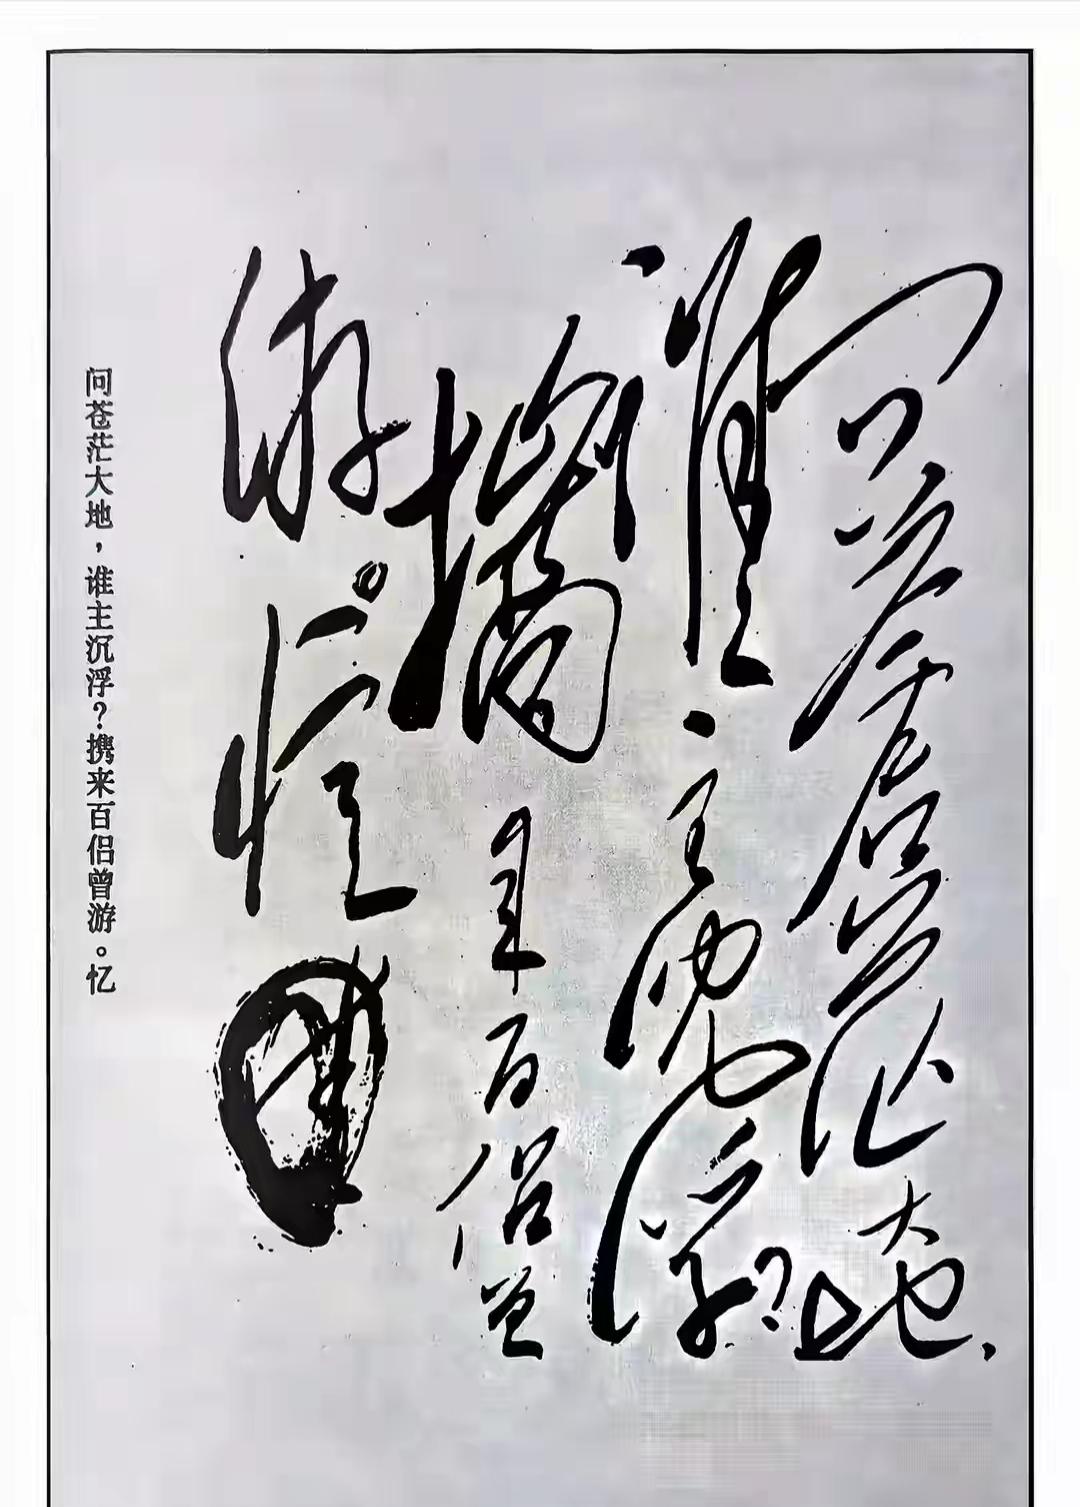 问苍茫大地，
谁主沉浮？
携来百侣曾
游。忆
问苍茫大地，谁主沉浮？携来百侣曾游。忆